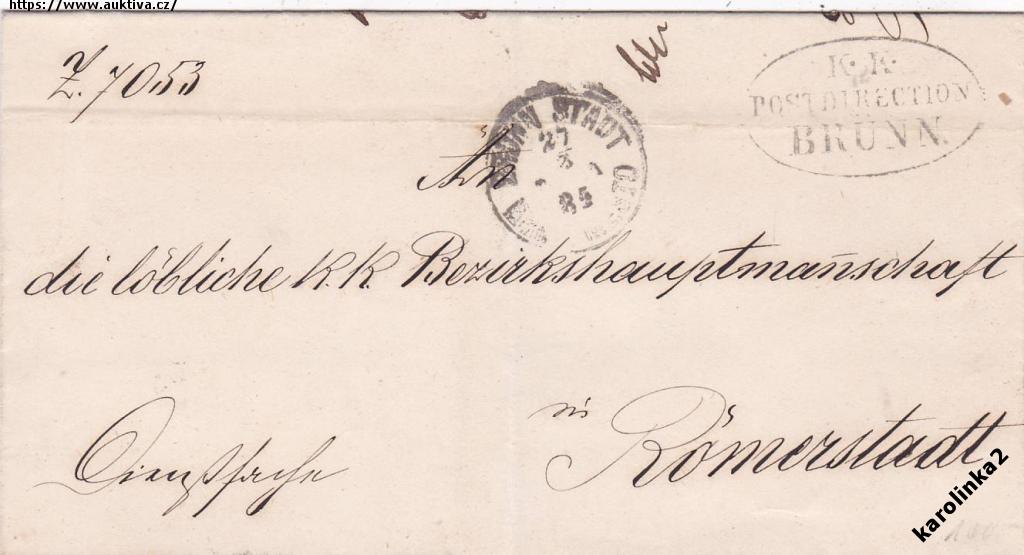 https://www.auktiva.cz/
Z. 7053
K. K.
POSTDIRECTION
BRÜNN.
BRÜNN STADT
27
3
85
An
die löbliche K. K. Bezirkshauptmañschaft
in
Römerstadt
Dienstsache
karolinka2